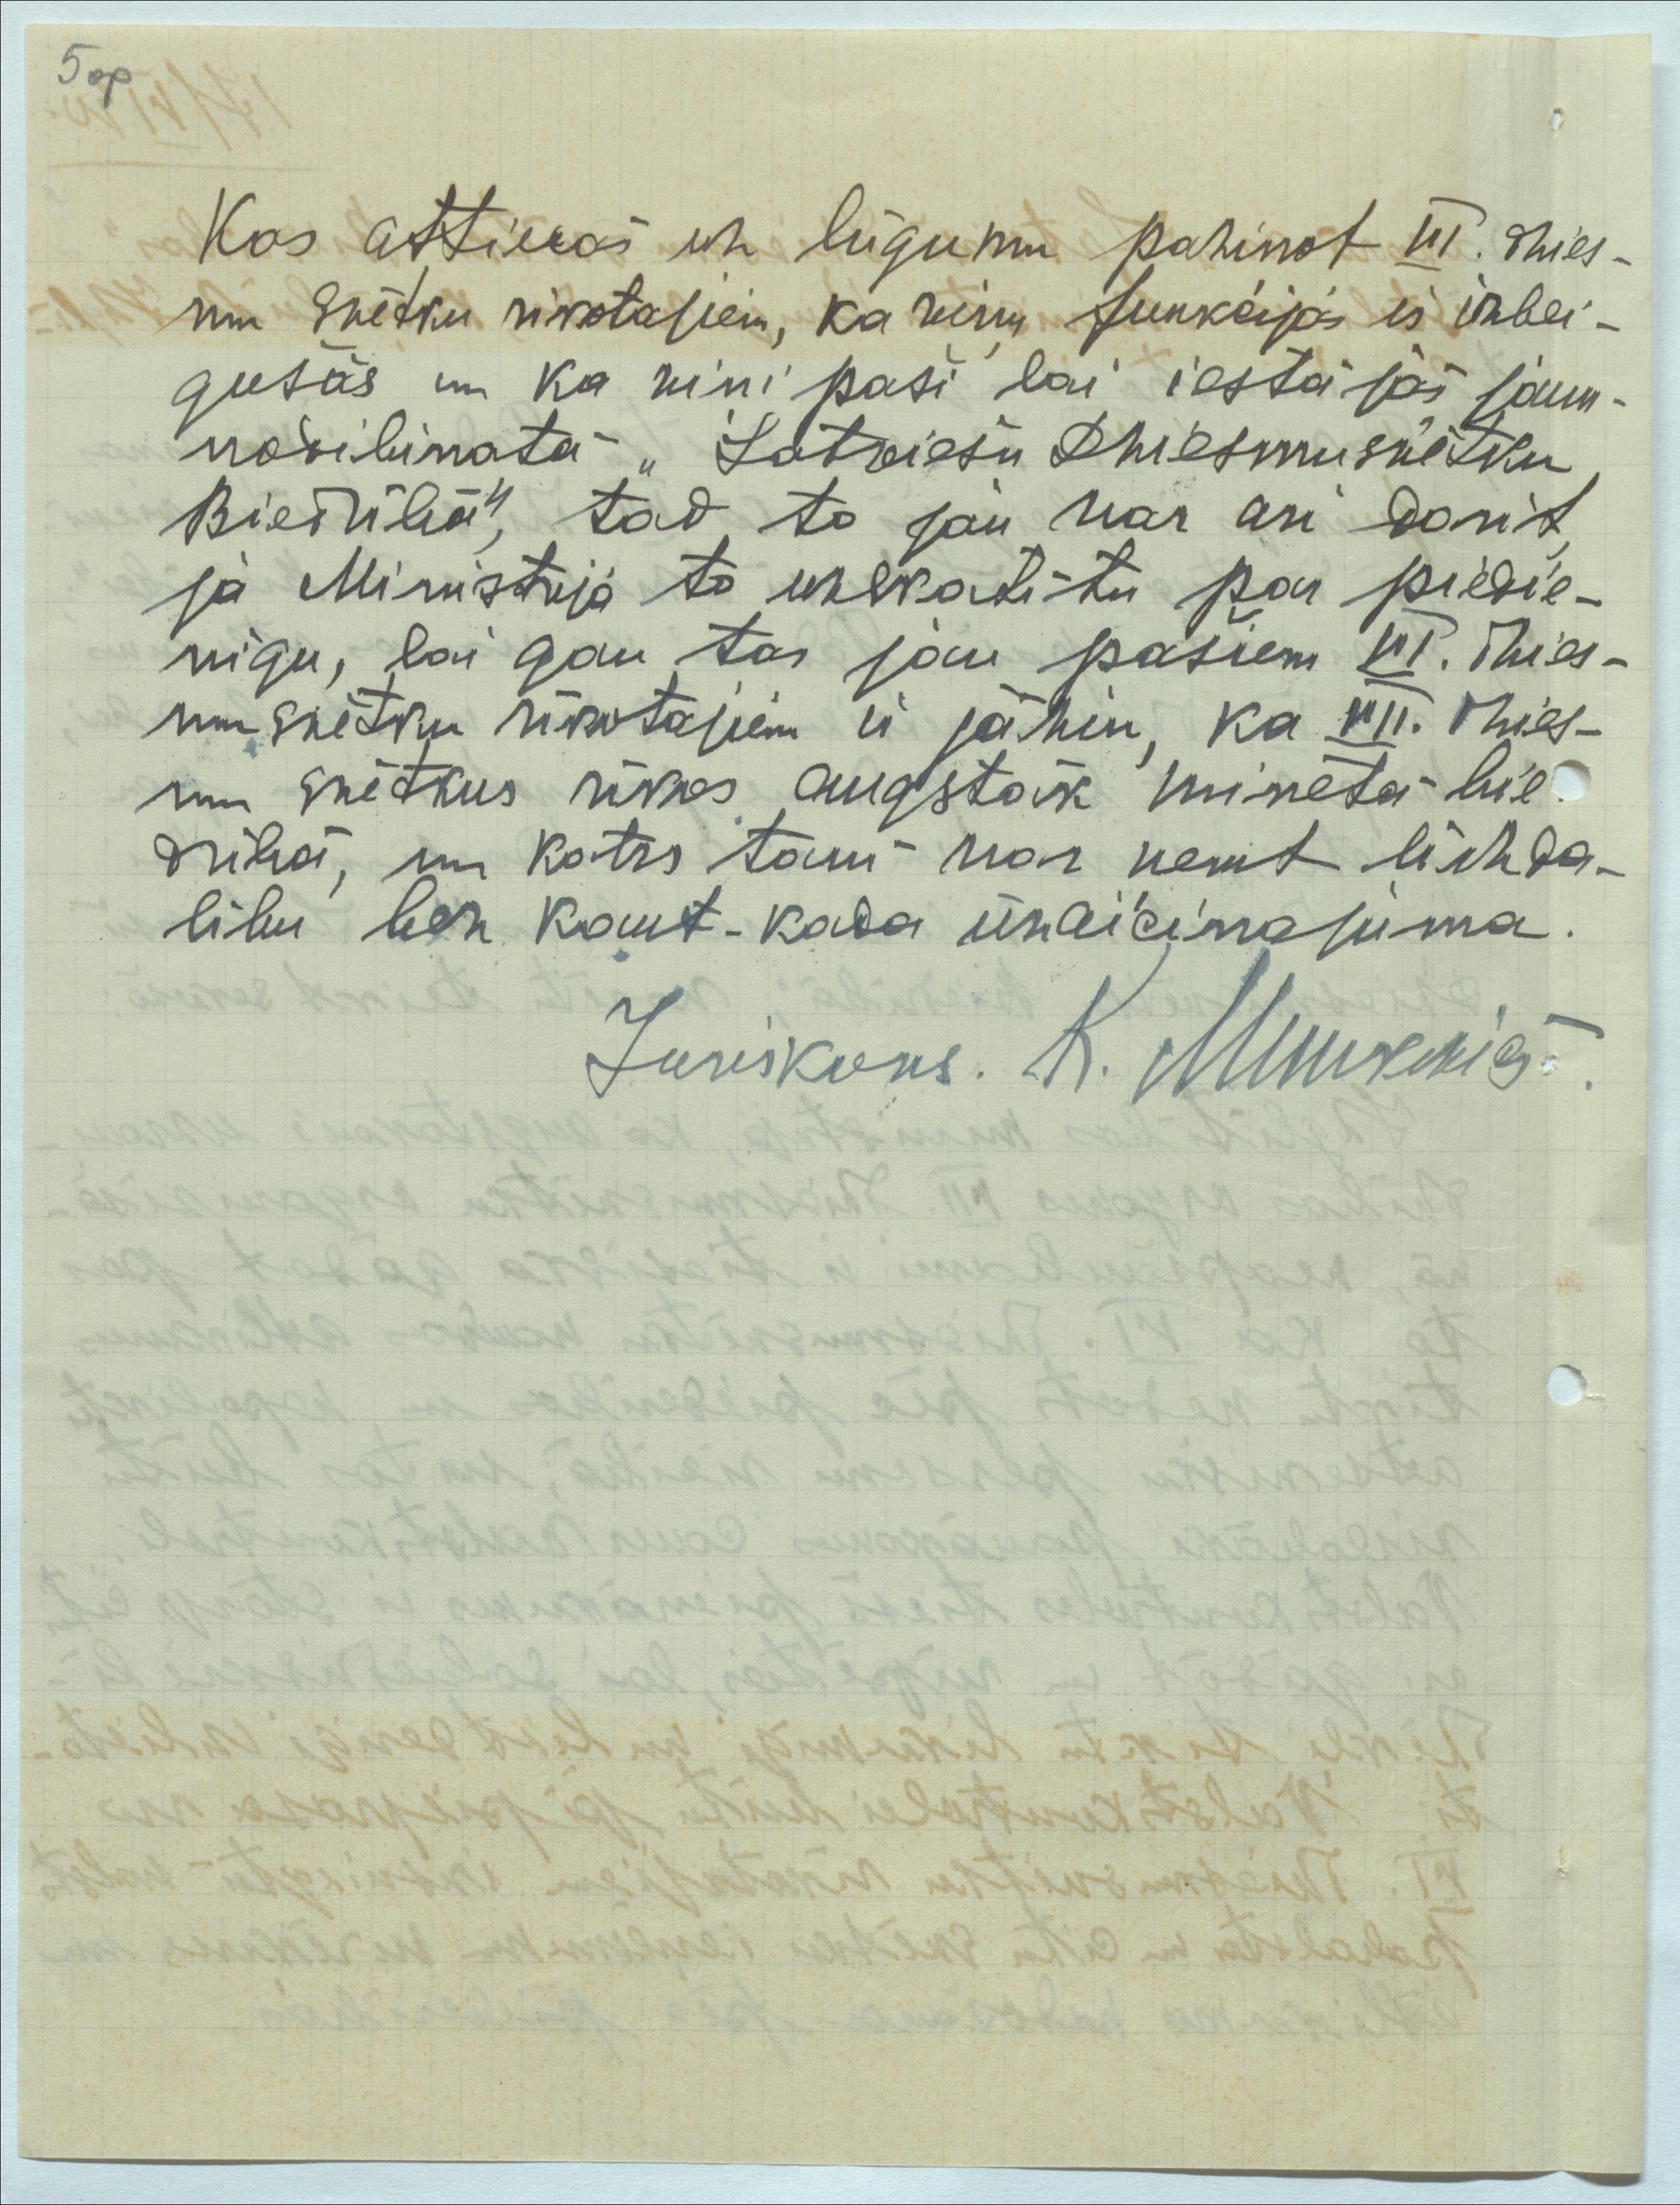 5 op
Kas attiecas uz lūgumu paziņot VI. dzies-
mu svētku rīkotajiem, ka viņu funkcijas ir izbei-
gušās un ka viņi paši lai iestājās jaun-
nodibinatā „Latviešu Dziesmusvētku
Biedrībā", tad to jau var ari darit,
ja Ministrija to uzskatītu par piedie-
nīgu, lai gan tas jau pašiem VI. dzies-
mu svētku rīkotajiem ir jāzin, ka VII. dzies-
mu svētkus rīkos augstāk minētā bie-
drībā, un katrs tani var ņemt līdzda-
lību bez kaut-kada uzaicinajuma.
Juriskons. K.